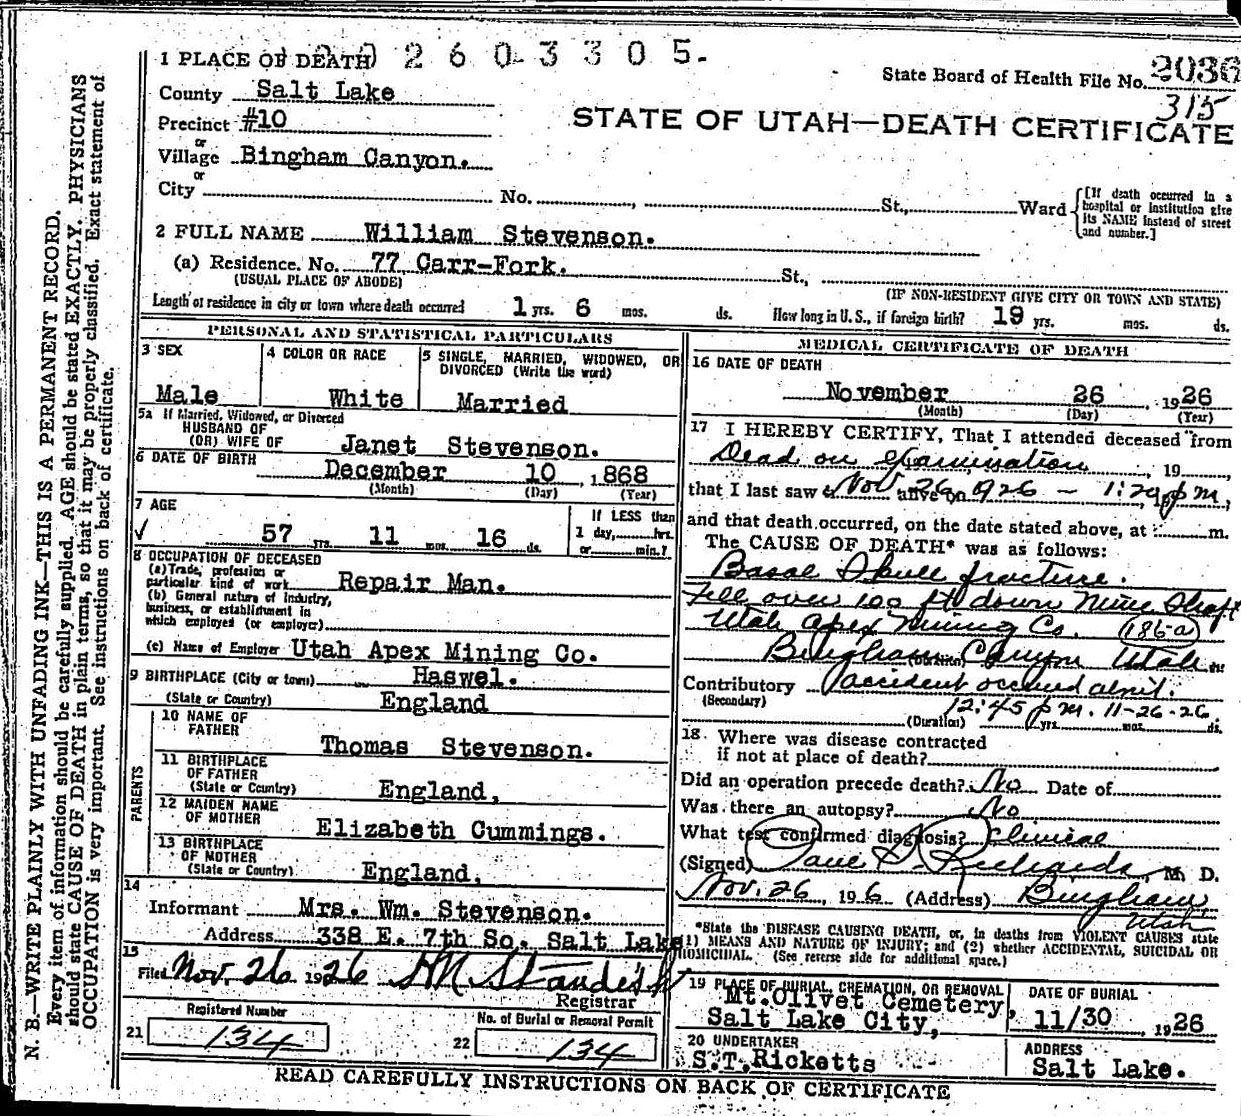 1 PLACE OF DEATH 2 6 0 3 3 0 5.
State Board of Health File No. 2036
315
County Salt Lake
STATE OF UTAH—DEATH CERTIFICATE
Precinct #10
or
Village Bingham Canyon.
or
City No. , St., Ward
[If death occurred in a hospital or institution give its NAME instead of street and number.]
2 FULL NAME William Stevenson.
(a) Residence. No. 77 Carr-Fork. St.,
(USUAL PLACE OF ABODE) (IF NON-RESIDENT GIVE CITY OR TOWN AND STATE)
Length of residence in city or town where death occurred 1 yrs. 6 mos. ds. How long in U. S., if foreign birth? 19 yrs. mos. ds.
PERSONAL AND STATISTICAL PARTICULARS
3 SEX
Male
4 COLOR OR RACE
White
5 SINGLE, MARRIED, WIDOWED, OR
DIVORCED (Write the word)
Married
5a If Married, Widowed, or Divorced
HUSBAND OF
(OR) WIFE OF Janet Stevenson.
6 DATE OF BIRTH
December 10 , 1868
(Month) (Day) (Year)
7 AGE
57 yrs. 11 mos. 16 ds.
If LESS than
1 day, hrs.
or min.?
8 OCCUPATION OF DECEASED
(a) Trade, profession or
particular kind of work Repair Man.
(b) General nature of industry,
business, or establishment in
which employed (or employer)
(c) Name of Employer Utah Apex Mining Co.
9 BIRTHPLACE (City or town) Haswel.
(State or Country) England
PARENTS
10 NAME OF
FATHER
Thomas Stevenson.
11 BIRTHPLACE
OF FATHER
(State or Country) England,
12 MAIDEN NAME
OF MOTHER
Elizabeth Cummings.
13 BIRTHPLACE
OF MOTHER
(State or Country) England,
14
Informant Mrs. Wm. Stevenson.
Address 338 E. 7th So. Salt Lake
15
Filed Nov. 26 1926 Standish
Registrar
Registered Number
21 134
No. of Burial or Removal Permit
22 134
MEDICAL CERTIFICATE OF DEATH
16 DATE OF DEATH
November 26 , 1926
(Month) (Day) (Year)
17 I HEREBY CERTIFY, That I attended deceased from
Dead on examination , 19
that I last saw h alive on Nov 26 1926 - 1:20 p m,
and that death occurred, on the date stated above, at m.
The CAUSE OF DEATH* was as follows:
Basal Skull fracture.
Fell over 100 ft down Mine Shaft
Utah Apex Mining Co. (186-a)
Bingham Canyon Utah
Contributory accident occured about.
(Secondary) 12:45 p m. 11-26-26.
(Duration) yrs. mos. ds.
18 Where was disease contracted
if not at place of death?
Did an operation precede death? No Date of
Was there an autopsy? No.
What test confirmed diagnosis? Clinical
(Signed) Richards, M. D.
Nov. 26, 1926 (Address) Bingham
Utah
*State the DISEASE CAUSING DEATH, or, in deaths from VIOLENT CAUSES state
(1) MEANS AND NATURE OF INJURY; and (2) whether ACCIDENTAL, SUICIDAL OR
HOMICIDAL. (See reverse side for additional space.)
19 PLACE OF BURIAL, CREMATION, OR REMOVAL
Mt. Olivet Cemetery,
Salt Lake City,
DATE OF BURIAL
11/30 , 1926
20 UNDERTAKER
S.T. Ricketts
ADDRESS
Salt Lake.
READ CAREFULLY INSTRUCTIONS ON BACK OF CERTIFICATE
N. B.—WRITE PLAINLY WITH UNFADING INK—THIS IS A PERMANENT RECORD.
Every item of information should be carefully supplied. AGE should be stated EXACTLY. PHYSICIANS
should state CAUSE OF DEATH in plain terms, so that it may be properly classified. Exact statement of
OCCUPATION is very important. See instructions on back of certificate.